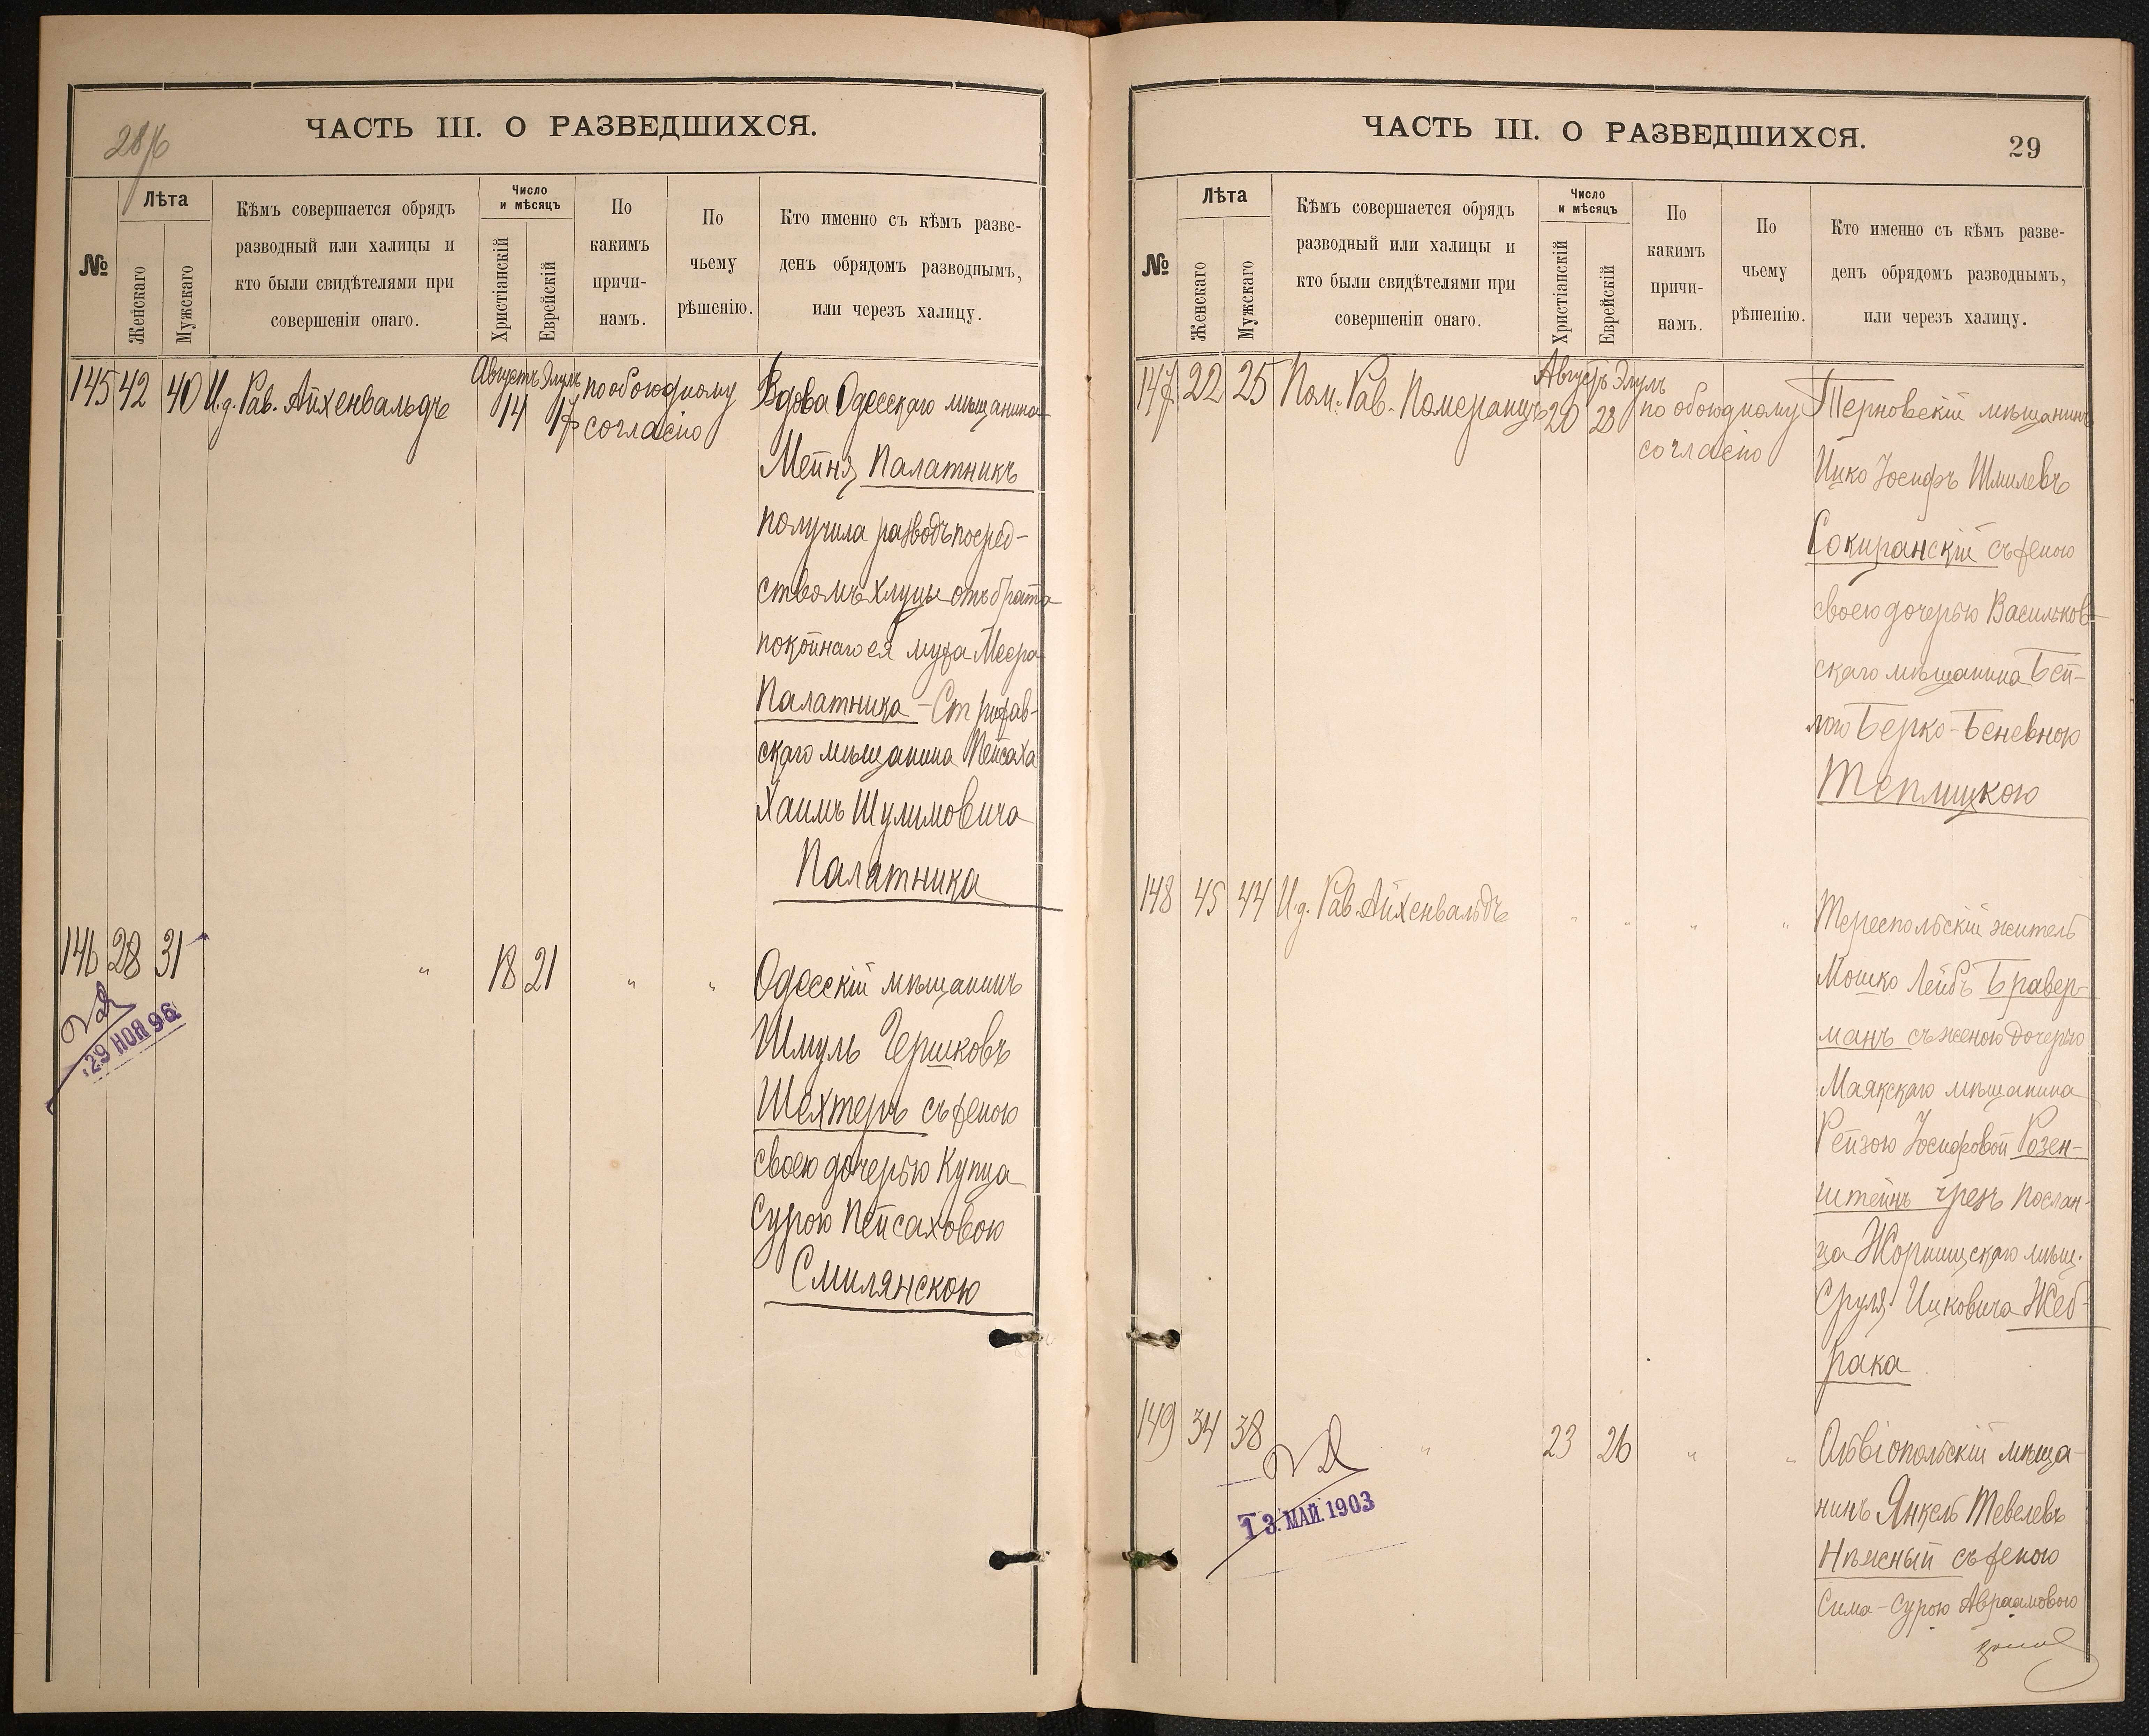 28/16
ЧАСТЬ III. О РАЗВЕДШИХСЯ.
№
Лѣта
Женскаго
Мужскаго
Кѣмъ совершается обрядъ
разводный или халицы и
кто были свидѣтелями при
совершеніи онаго.
Число
и мѣсяцъ
Христіанскій
Еврейскій
По
какимъ
причи-
намъ.
По
чьему
рѣшенію.
Кто именно съ кѣмъ разве-
денъ обрядомъ разводнымъ,
или черезъ халицу.
145 42 40 И.д. Рав. Айхенвальдъ
Августъ Элулъ
14 17
по обоюдному
согласію
Вдова Одесскаго мѣщанина
Мейня Палатникъ
получила разводъ посред-
ствомъ хлуцы отъ брата
покойнаго ея мужа Меера
Палатника - Стрижав-
скаго мѣщанина Пейсаха
Хаимъ Шулимовича
Палатника
146 28 31 " 18 21 " "
29 НОЯ 96
Одесскій мѣщанинъ
Шмуль Гершковъ
Шехтеръ съ женою
своею дочерью Купца
Сурою Пейсаховою
Смилянскою
ЧАСТЬ III. О РАЗВЕДШИХСЯ.
29
№
Лѣта
Женскаго
Мужскаго
Кѣмъ совершается обрядъ
разводный или халицы и
кто были свидѣтелями при
совершеніи онаго.
Число
и мѣсяцъ
Христіанскій
Еврейскій
По
какимъ
причи-
намъ.
По
чьему
рѣшенію.
Кто именно съ кѣмъ разве-
денъ обрядомъ разводнымъ,
или черезъ халицу.
147 22 25 Пом. Рав. Померанцъ
Августъ Элулъ
20 23
по обоюдному
согласію
Терновскій мѣщанинъ
Ицко Іосифъ Шмилевъ
Сокиранскій съ женою
своею дочерью Васильков-
скаго мѣщанина Бей-
лою Берко-Беневною
Теплицкою
148 45 44 И.д. Рав. Айхенвальдъ " " " "
Тереспольскій житель
Мошко Лейбъ Бравер-
манъ съ женою дочерью
Маякскаго мѣщанина
Рейзою Іосифовой Розен-
штейнъ чрезъ послан-
ца Жорнищскаго мѣщ.
Сруля Ицковича Жеб-
рака
149 34 38 " 23 26 " "
13. МАЙ. 1903
Ольвіопольскій мѣща-
нинъ Янкель Тевелевъ
Нѣжный съ женою
Сима-Сурою Авраамовою